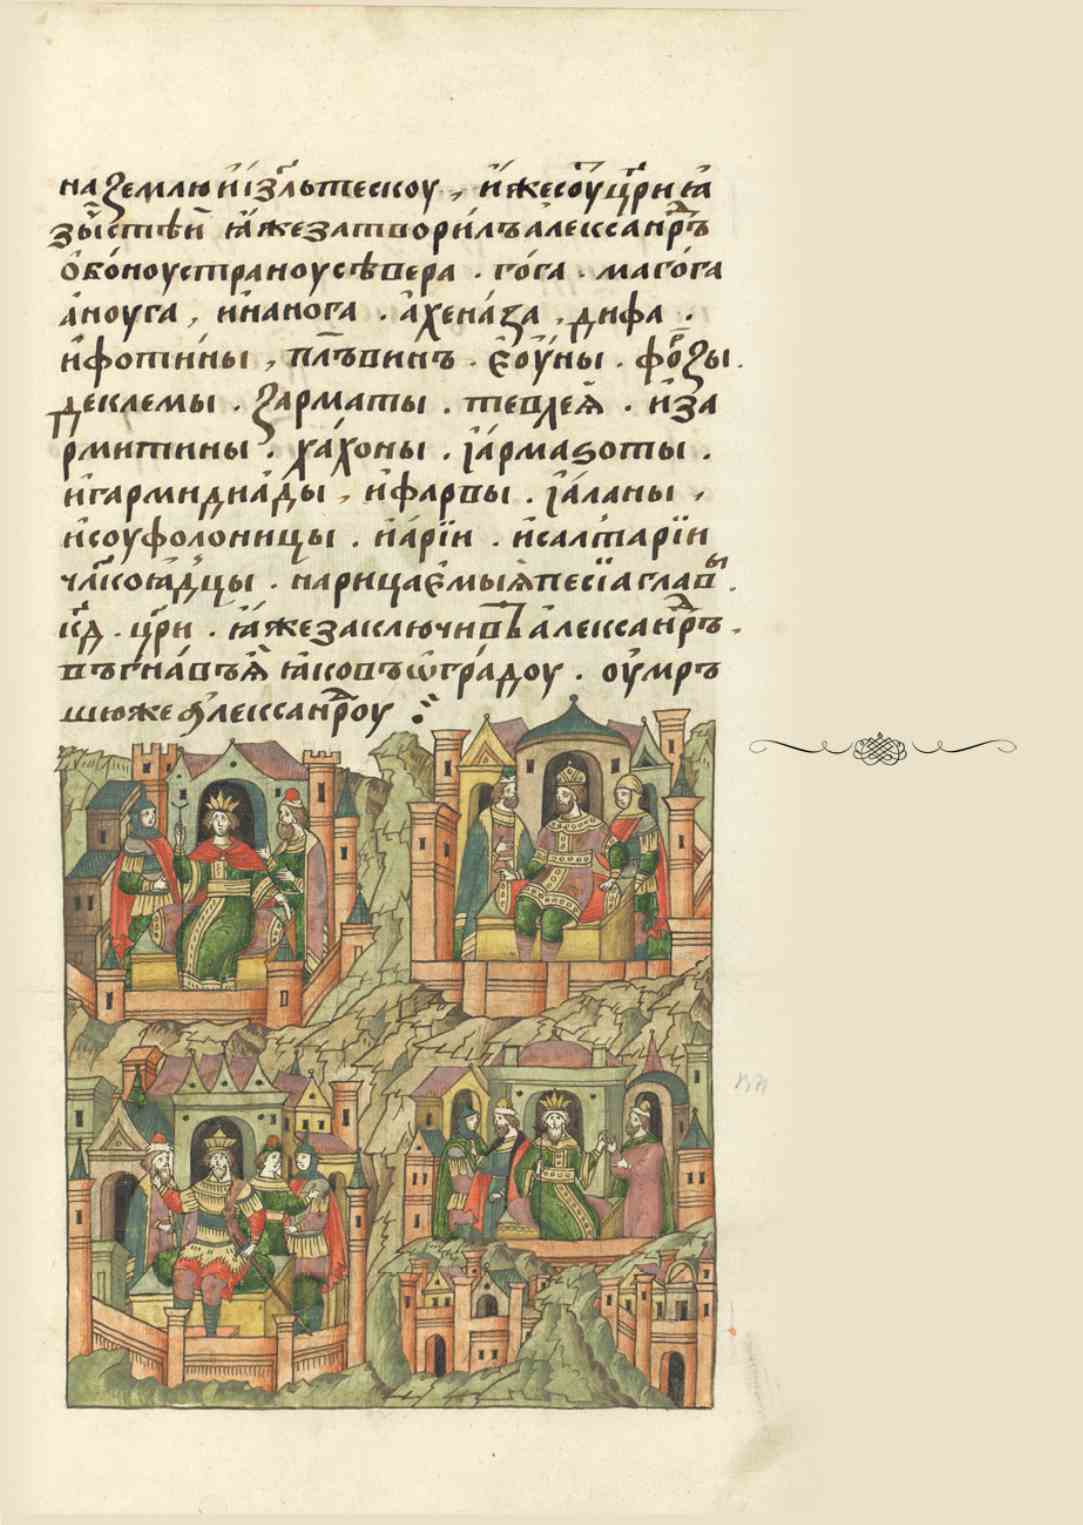 на землю и і҆зл҃ьтескоу , и҆жесоу҆ц҃рнꙗ҆
зы҆стѣи ꙗ҆жезатвори́лъа҆леѯан҃ръ
о҆бо́ноустраноусѣвера . го́га . маго́га
а҆ноуга , и҆нанога . а҆хена́ꙁа , дифа .
и҆фоти́ны , пл҃ъвинъ . є҆оу́ны . фо́ꙁы .
деклемы . ꙁарматы . тевлеѧ҆ . и҆за
рмитины . ха́хоны . ꙗ҆рмаѕоты .
и҆гармидиа́ды , и҆фарвы . і҆а́ланы ,
и҆соуфолоницы . и҆а́рїи . и҆салта́рїи
чл҃коꙗдцы . нарицае҆мыѧ҆песїаглавы .
к҃д . ц҃ри . ꙗ҆жезаключивъа҆лександръ .
въгна́въѧ҆ ꙗ҆ковъѡгра́доу . оу҆мръ
шюжеа҆лександроу ⁘